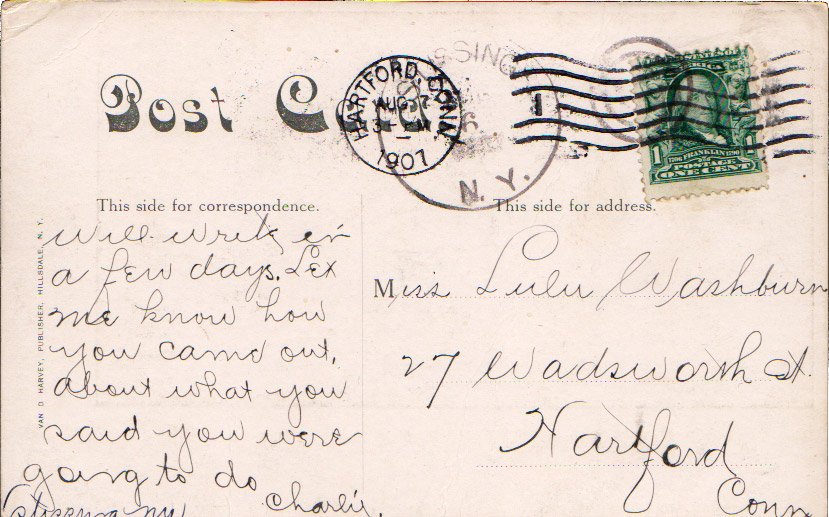 Post C
HARTFORD, CONN.
AUG 7
3- PM
1907
SING
N. Y.
1
1706 FRANKLIN 1790
POSTAGE
ONE CENT
1
This side for correspondence.
This side for address.
VAN D HARVEY, PUBLISHER, HILLSDALE, N. Y.
Will write in
a few days. Let
me know how
you came out,
about what you
said you were
going to do
Charlie.
Miss Lulu Washburn
27 Wadsworth St.
Hartford
Conn